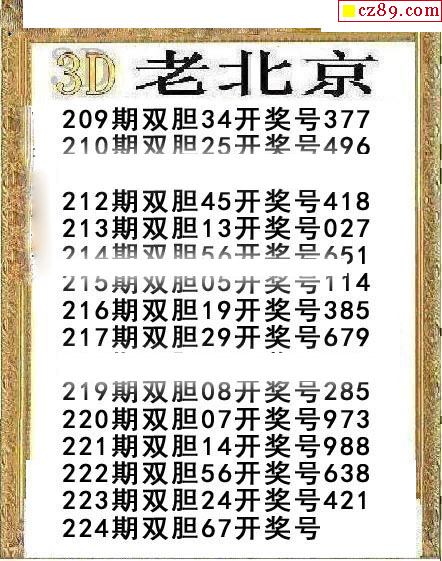 cz89.com
3D 老北京
209期双胆34开奖号377
210期双胆25开奖号496
212期双胆45开奖号418
213期双胆13开奖号027
214期双胆56开奖号651
215期双胆05开奖号114
216期双胆19开奖号385
217期双胆29开奖号679
219期双胆08开奖号285
220期双胆07开奖号973
221期双胆14开奖号988
222期双胆56开奖号638
223期双胆24开奖号421
224期双胆67开奖号